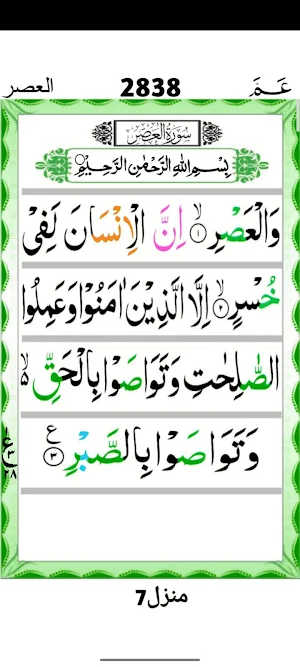 العصر 2838 عَمَّ
سُوْرَةُ الْعَصْرِ
بِسْمِ اللهِ الرَّحْمٰنِ الرَّحِيْمِ
وَالْعَصْرِ ۙ﴿۱﴾ اِنَّ الْاِنْسَانَ لَفِیْ
خُسْرٍ ۙ﴿۲﴾ اِلَّا الَّذِیْنَ اٰمَنُوْا وَعَمِلُوا
الصّٰلِحٰتِ وَتَوَاصَوْا بِالْحَقِّ ۙ۬
وَتَوَاصَوْا بِالصَّبْرِ ﴿۳﴾ ع
ع ۳ ۲۸
منزل7